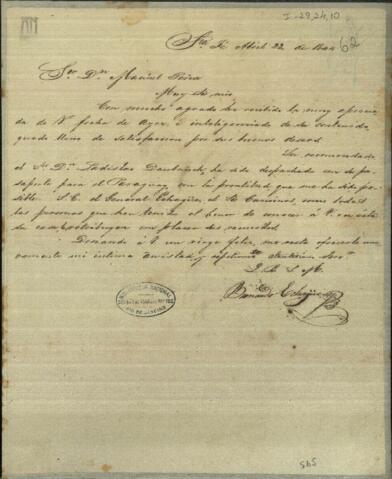 I-29,24,10
62
Sta. Fe Abril 22 de
Sor. Dn. Manuel
Muy Sr. mio
Con mucho agrado he recibido la muy apreciada
de V. fecha de ayer, é inteligenciado de su contenido,
quedo lleno de satisfaccion por sus buenos deseos.
Su recomendado
el Sr. Dn. Ladislao ha sido despachado con su pa-
saporte para el Paraguay con la prontitud que me ha sido po-
sible. S.E. el General Echagüe, el Sr. como todas
las personas que han tenido el honor de conocer á V. en esta
su casa, retribuyen con placer sus
Deseando á V. un viage feliz, me resta ofrecerle nue-
vamente mi intima amistad, y
Q. B. S. M.
Echagüe
BIBLIOTHECA NACIONAL
RIO DE JANEIRO
565